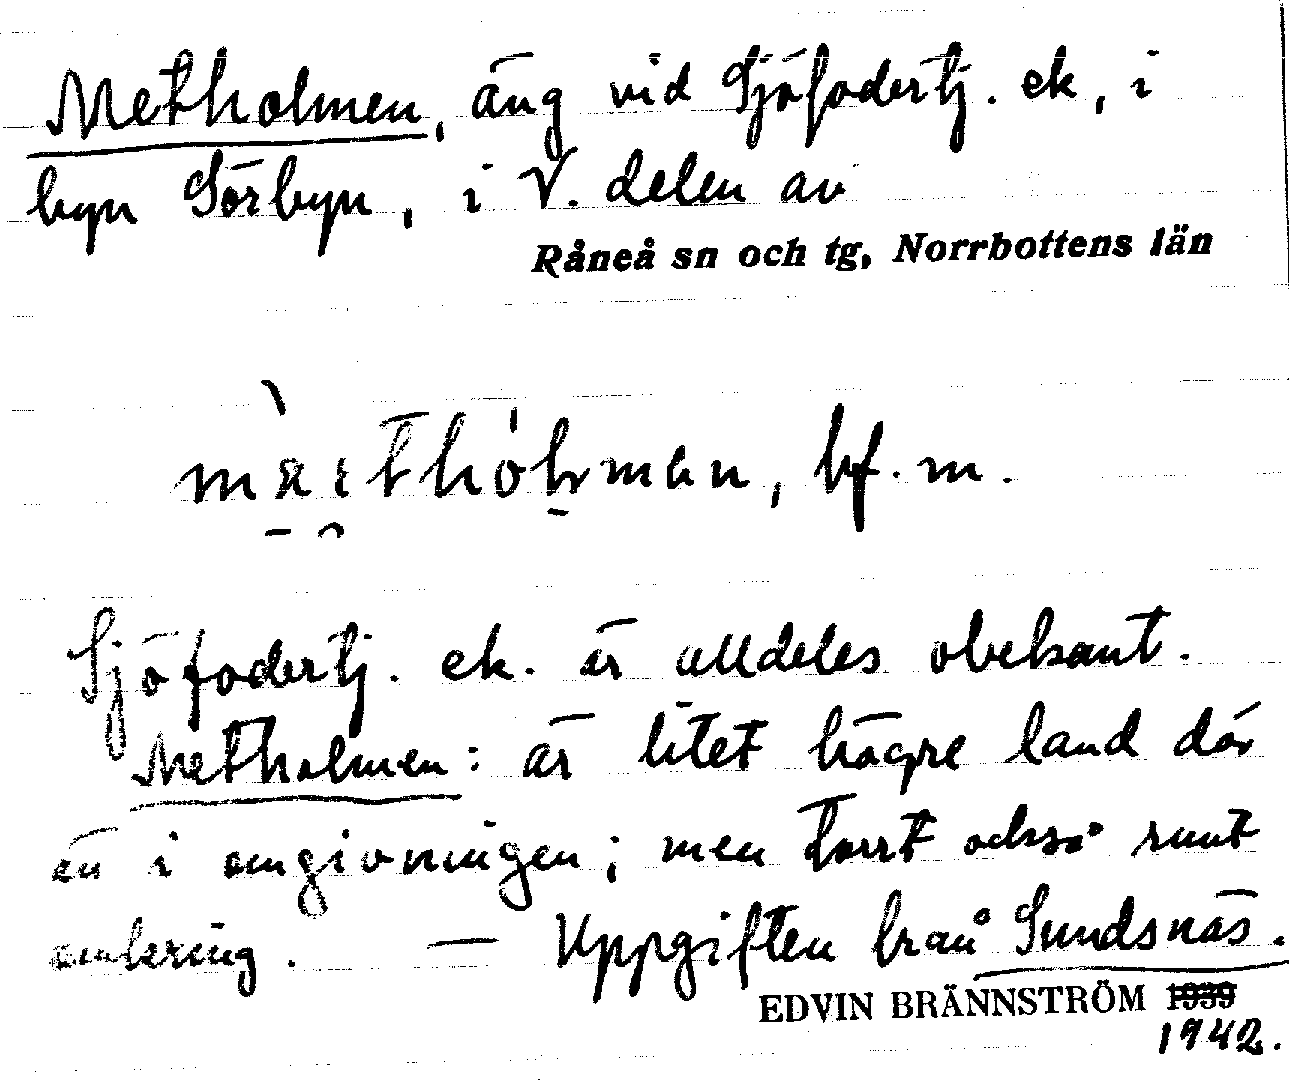 Metholmen, äng vid Sjöfodertj. ek, i
byn Sörbyn, i V. delen av
Råneå sn och tg, Norrbottens län
bf. m.
Sjöfodertj. ek. är alldeles obekant.
Metholmen: är litet högre land där
än i omgivningen; men torrt också runt
omkring. — Uppgiften från Sundsnäs.
EDVIN BRÄNNSTRÖM 1939
1942.